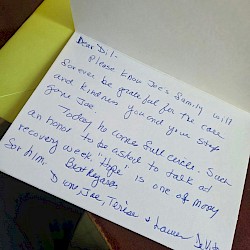 Dear Dil-
Please know Joe's family will
forever be grateful for the care
and kindness you and your staff
gave Joe.
Today, he comes full circle. Such
an honor to be asked to talk ad
recovery week. Hope, is one of many
for him.
Best Regards,
Diane, Joe, Terese & Lauren